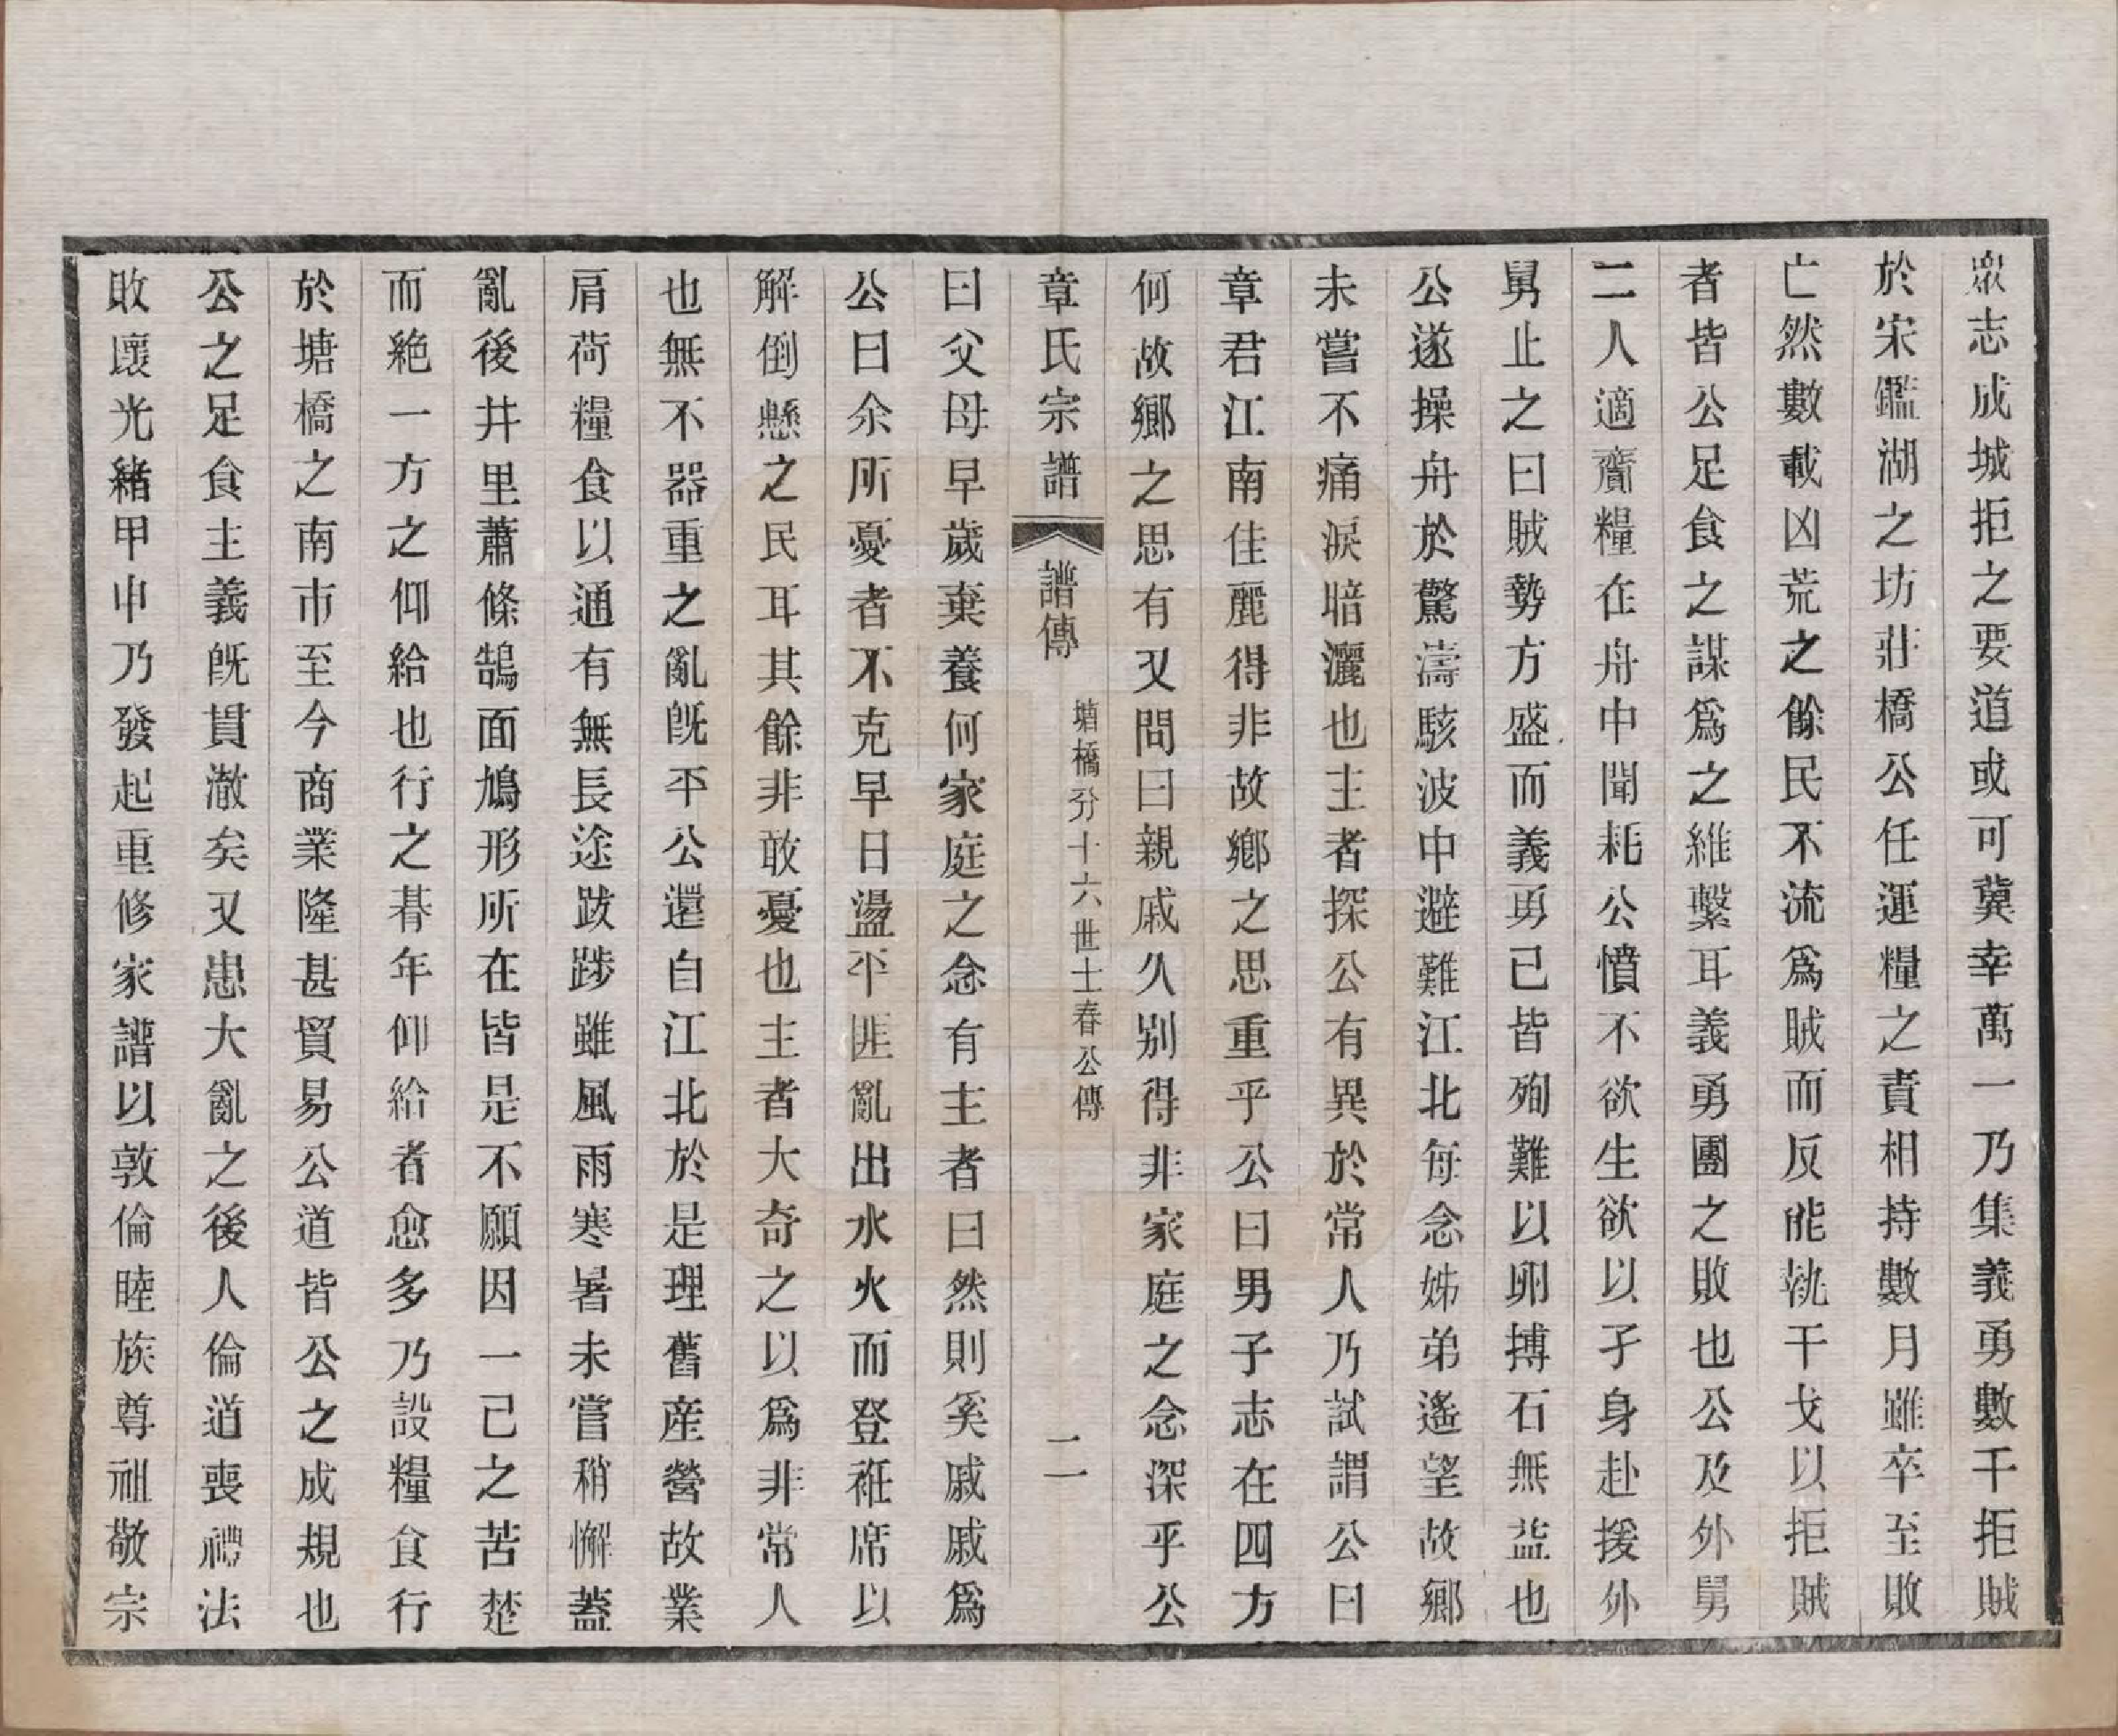 眾志成城拒之要道或可冀幸萬一乃集義勇數千拒賊
於宋鑑湖之坊莊橋公任運糧之責相持數月雖卒至敗
亡然數載凶荒之餘民不流爲賊而反能執干戈以拒賊
者皆公足食之謀爲之維繫耳義勇團之敗也公及外舅
二人適齎糧在舟中聞耗公憤不欲生欲以孑身赴援外
舅止之曰賊勢方盛而義勇已皆殉難以卵搏石無益也
公遂操舟於驚濤駭波中避難江北每念姊弟遙望故鄉
未嘗不痛淚暗灑也主者探公有異於常人乃試謂公曰
章君江南佳麗得非故鄉之思重乎公曰男子志在四方
何故鄉之思有又問曰親戚久别得非家庭之念深乎公
章氏宗譜 譜傳 塘橋分十六世士春公傳 二
曰父母早歲棄養何家庭之念有主者曰然則奚戚戚爲
公曰余所憂者不克早日盪平匪亂出水火而登袵席以
解倒懸之民耳其餘非敢憂也主者大奇之以爲非常人
也無不器重之亂旣平公還自江北於是理舊産營故業
肩荷糧食以通有無長途跋踄雖風雨寒暑未嘗稍懈蓋
亂後井里蕭條鵠面鳩形所在皆是不願因一己之苦楚
而絶一方之仰給也行之朞年仰給者愈多乃設糧食行
於塘橋之南市至今商業隆甚貿易公道皆公之成規也
公之足食主義旣貫澈矣又患大亂之後人倫道喪禮法
敗壞光緒甲申乃發起重修家譜以敦倫睦族尊祖敬宗